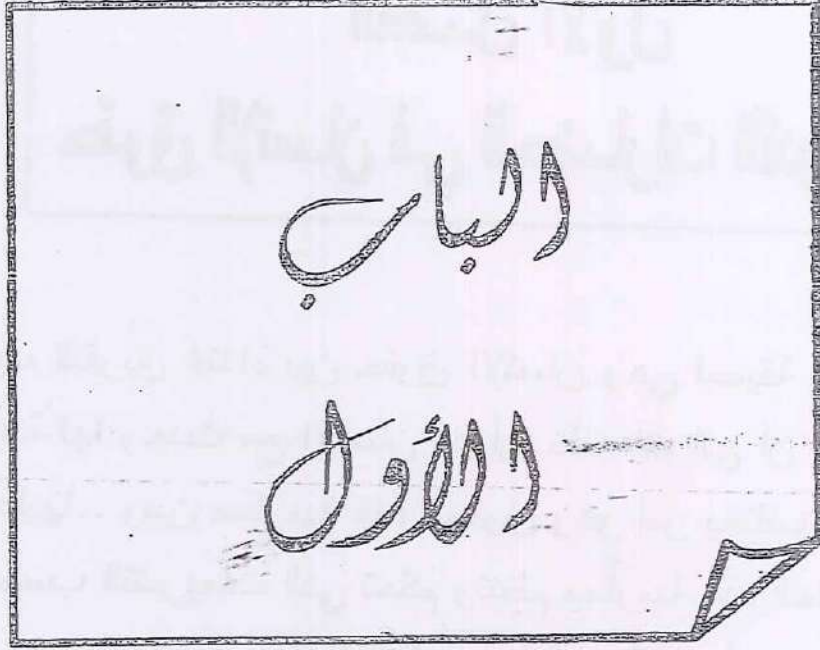 الباب
الأول